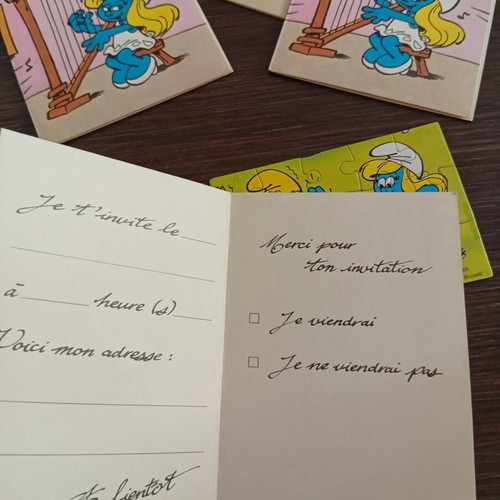 Je t'invite le
à heure (s)
Voici mon adresse :
A bientôt
Merci pour
ton invitation
☐ Je viendrai
☐ Je ne viendrai pas